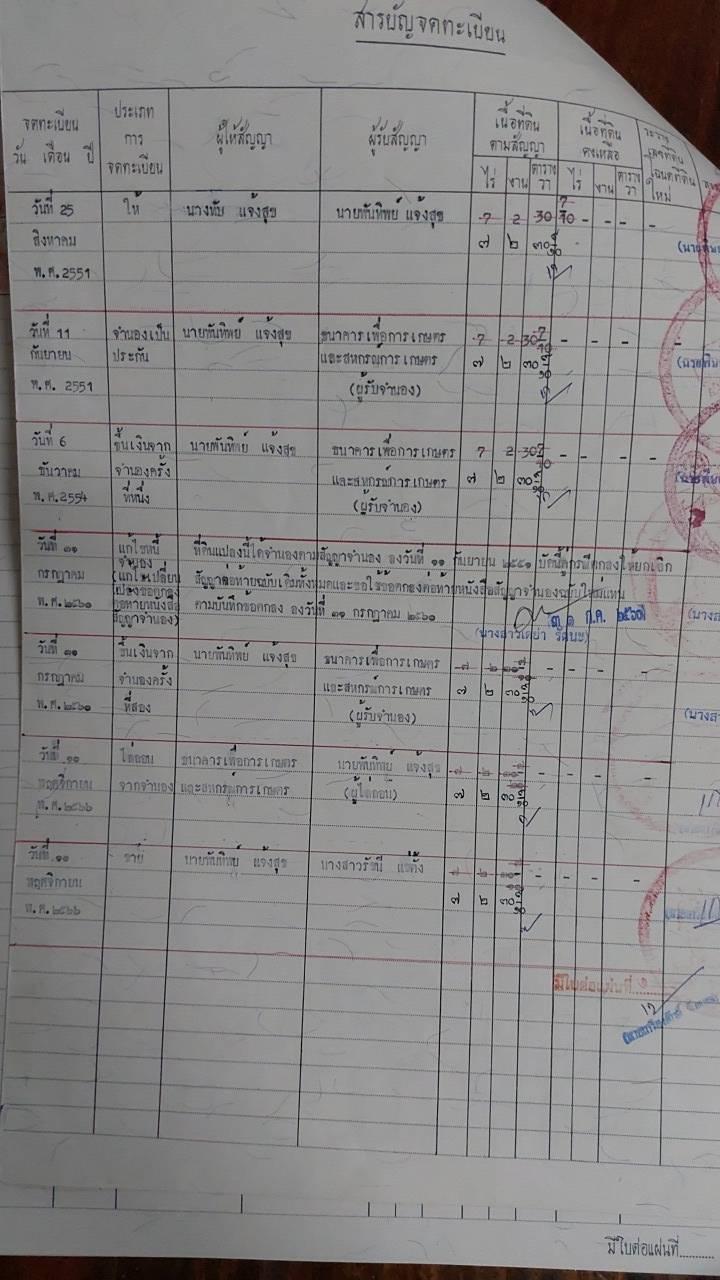 สารบัญจดทะเบียน
จดทะเบียน
วัน เดือน ปี
ประเภท
การ
จดทะเบียน
ผู้ให้สัญญา
ผู้รับสัญญา
เนื้อที่ดิน
ตามสัญญา
ไร่ งาน ตาราง
วา
เนื้อที่ดิน
คงเหลือ
ไร่ งาน ตาราง
วา
ใหม่
วันที่ 25 ให้ นางทับ แจ้งสุข นายพันทิพย์ แจ้งสุข 7 2 30 7/10 - - - -
สิงหาคม ๗ ๒ ๓๐ ๗/๑๐
พ.ศ. 2551
วันที่ 11 จำนองเป็น นายพันทิพย์ แจ้งสุข ธนาคารเพื่อการเกษตร 7 2 30 7/10 - - - -
กันยายน ประกัน และสหกรณ์การเกษตร ๗ ๒ ๓๐ ๗/๑๐
พ.ศ. 2551 (ผู้รับจำนอง)
วันที่ 6 ขึ้นเงินจาก นายพันทิพย์ แจ้งสุข ธนาคารเพื่อการเกษตร 7 2 30 7/10 - - - -
ธันวาคม จำนองครั้ง และสหกรณ์การเกษตร ๗ ๒ ๓๐ ๗/๑๐
พ.ศ. 2554 ที่หนึ่ง (ผู้รับจำนอง)
วันที่ ๓๑ แก้ไขหนี้ ที่ดินแปลงนี้ได้จำนองตามสัญญาจำนอง ลงวันที่ ๑๑ กันยายน ๒๕๕๑ บัดนี้คู่กรณีตกลงให้ยกเลิก
จำนอง
กรกฎาคม (แก้ไขเปลี่ยน สัญญาต่อท้ายฉบับเดิมทั้งหมดและขอใช้ข้อตกลงต่อท้ายหนังสือสัญญาจำนองฉบับใหม่แทน
แปลงข้อตกลง
พ.ศ. ๒๕๖๐ ต่อท้ายหนังสือ ตามบันทึกข้อตกลง ลงวันที่ ๓๑ กรกฎาคม ๒๕๖๐
สัญญาจำนอง)
๓๑ ก.ค. ๒๕๖๐
วันที่ ๓๑ ขึ้นเงินจาก นายพันทิพย์ แจ้งสุข ธนาคารเพื่อการเกษตร ๗ ๒ ๓๐ - - - -
กรกฎาคม จำนองครั้ง และสหกรณ์การเกษตร ๗ ๒ ๓๐ ๗/๑๐
พ.ศ. ๒๕๖๐ ที่สอง (ผู้รับจำนอง)
วันที่ ๑๐ ไถ่ถอน ธนาคารเพื่อการเกษตร นายพันทิพย์ แจ้งสุข ๗ ๒ ๓๐ - - - -
พฤศจิกายน จากจำนอง และสหกรณ์การเกษตร (ผู้ไถ่ถอน) ๗ ๒ ๓๐ ๗/๑๐
พ.ศ. ๒๕๖๖
วันที่ ๑๐ ขาย นายพันทิพย์ แจ้งสุข นางสาวรัชนี แซ่ตั้ง ๗ ๒ ๓๐ - - - -
พฤศจิกายน ๗ ๒ ๓๐ ๗/๑๐
พ.ศ. ๒๕๖๖
มีใบต่อแผ่นที่
มีใบต่อแผ่นที่..........